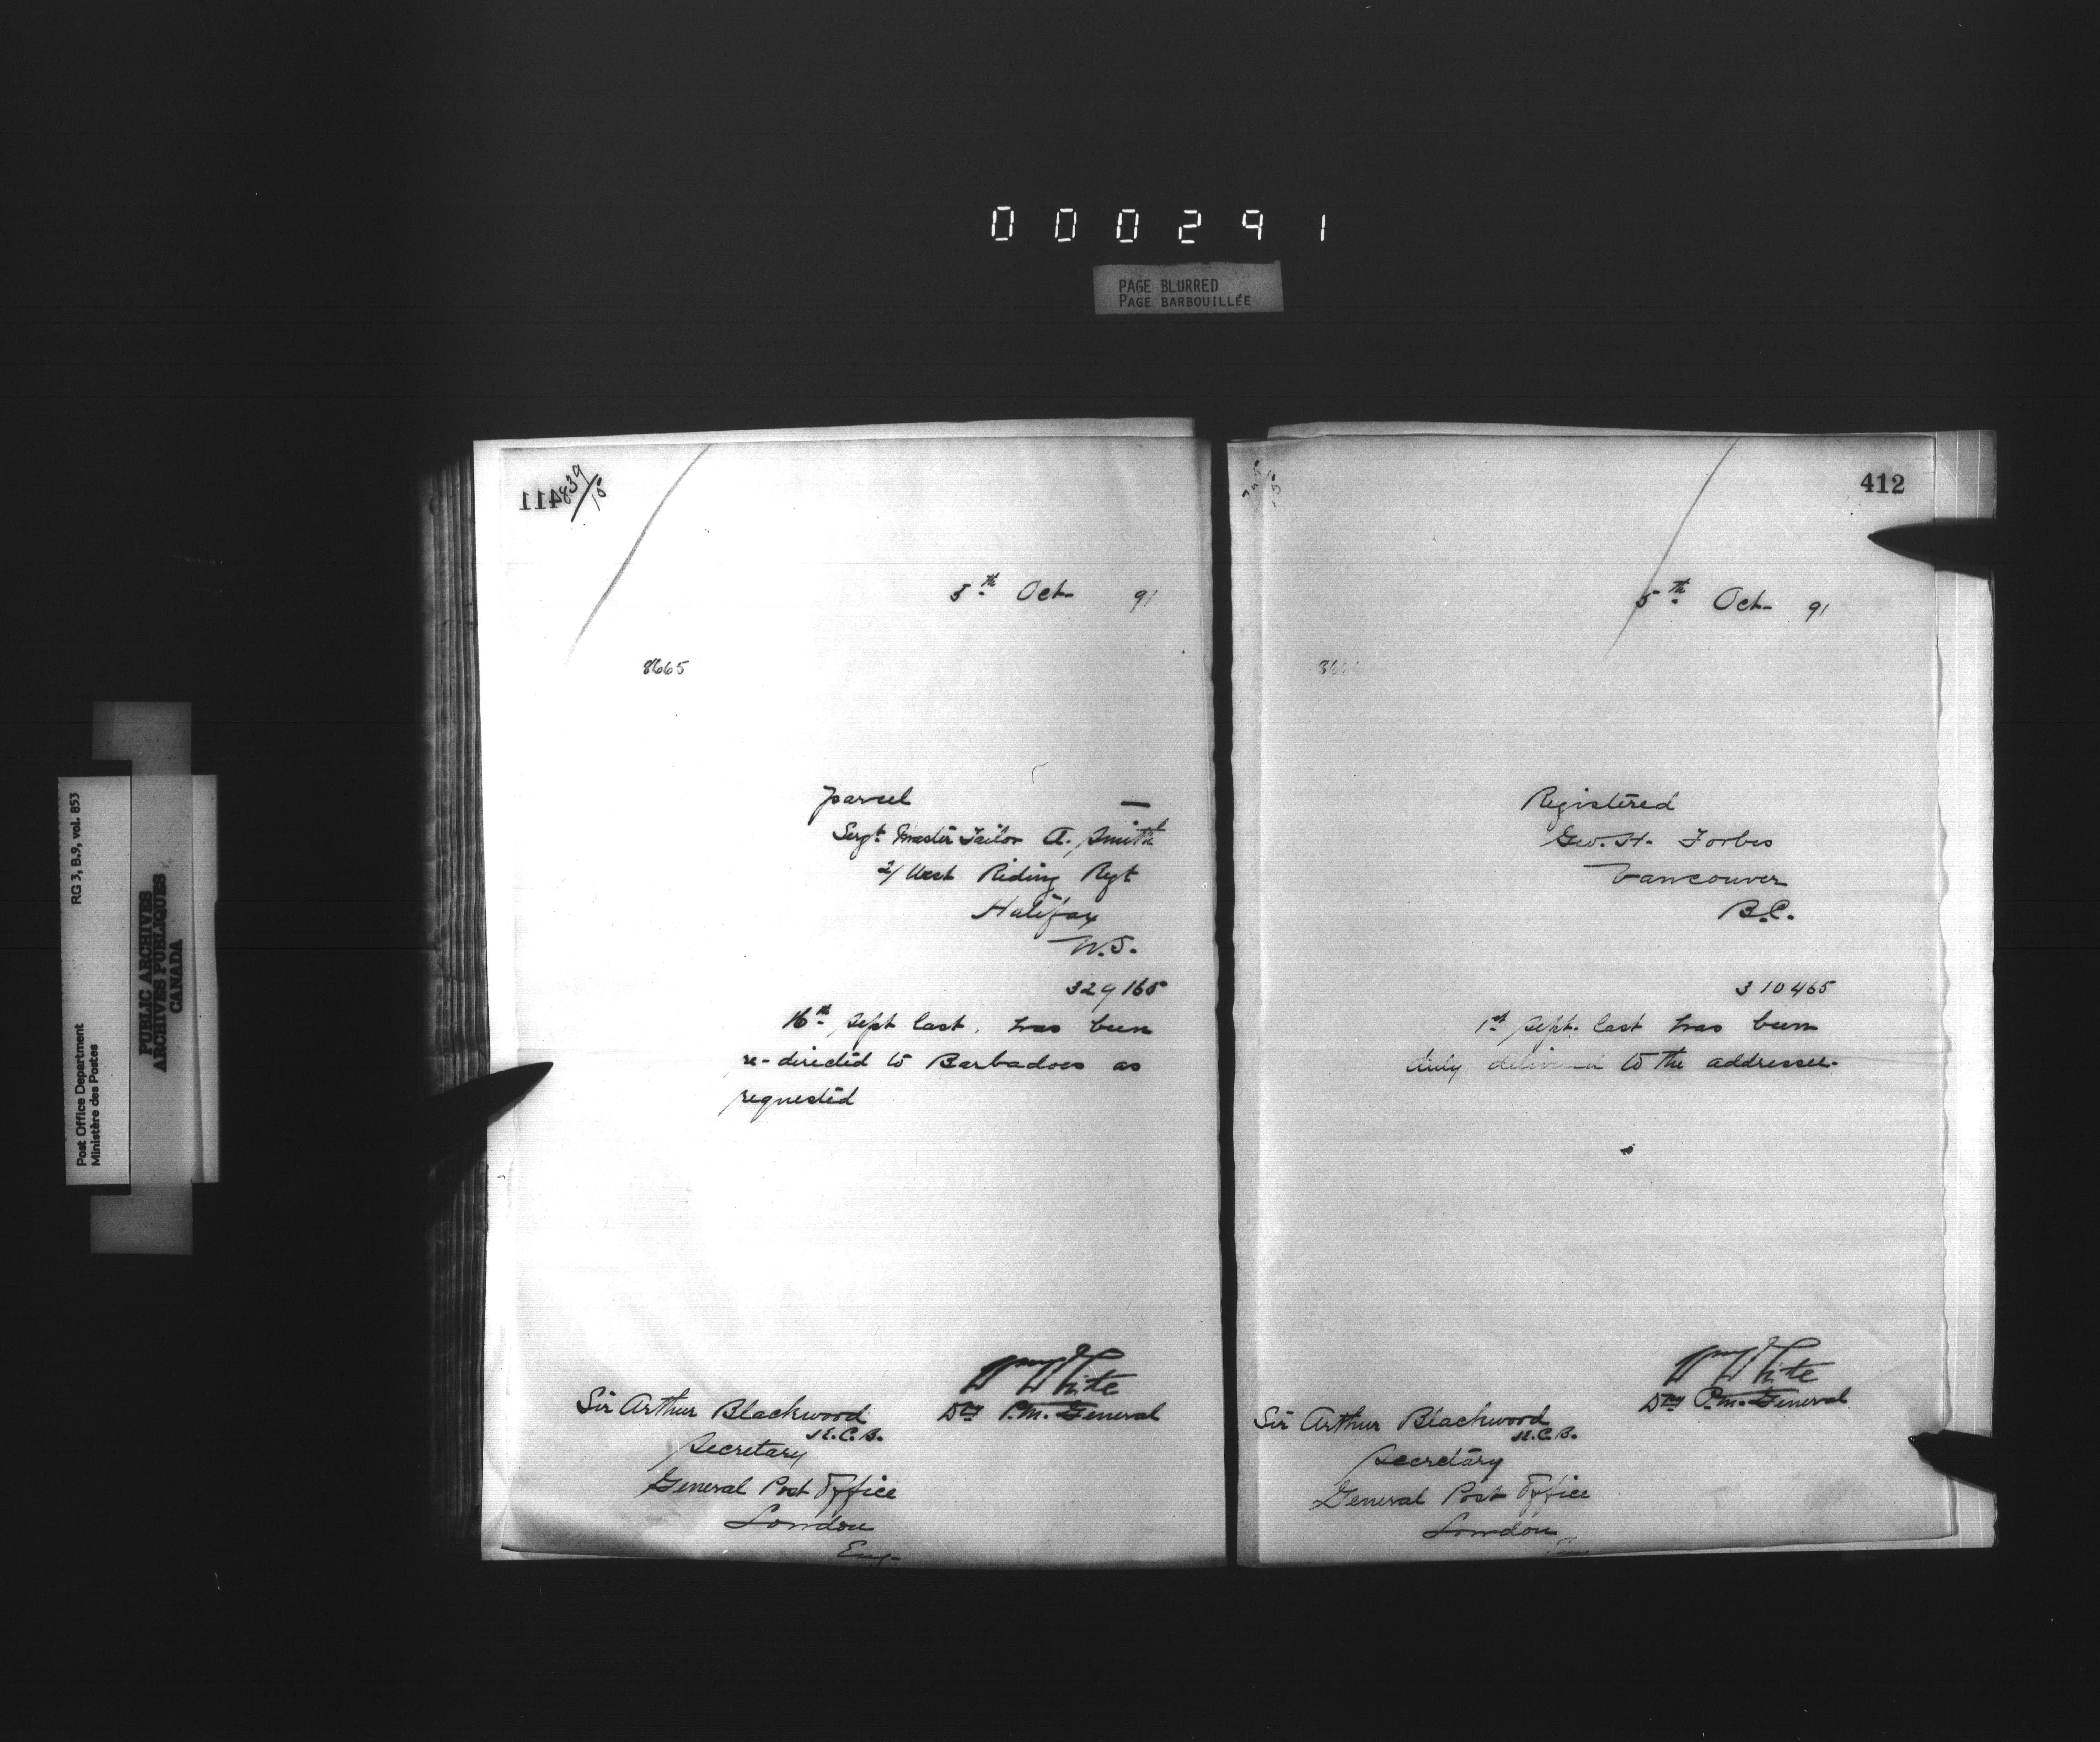 000291
PAGE BLURRED
PAGE BARBOUILLÉE
RG 3, B.9, vol. 853
Post Office Department
Ministère des Postes
PUBLIC ARCHIVES
ARCHIVES PUBLIQUES
CANADA
411
839/15
5th Oct 91
8665
parcel
Sergt Master Tailor A. Smith
2/ West Riding Regt
Halifax
N.S.
329165
16th Sept last, has been
re-directed to Barbadoes as
requested
Wm White
Dty P.M. General
Sir Arthur Blackwood
K.C.B.
Secretary
General Post Office
London
Eng-
412
5th Oct 91
Registered
Geo. H. Forbes
Vancouver
B.C.
310465
1st Sept. last has been
duly delivered to the addressee.
Wm White
Dty P.M. General
Sir Arthur Blackwood
K.C.B.
Secretary
General Post Office
London